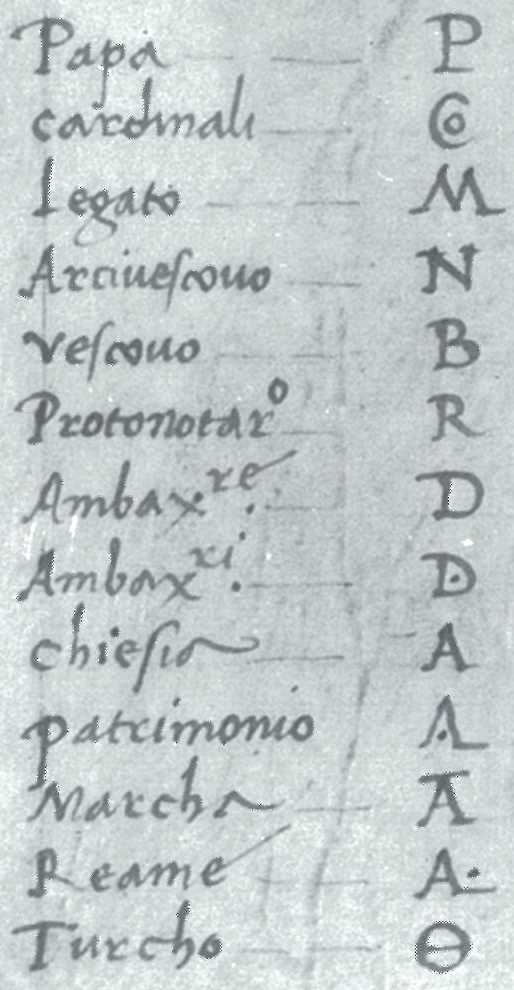 Papa P
cardinali
Legato M
Arciuescouo N
Vescouo B
Protonotarº R
Ambaxʳᵉ. D
Ambaxʳⁱ. D
chiesia A
patrimonio
Marcha Ā
Reame A
Turcho Θ